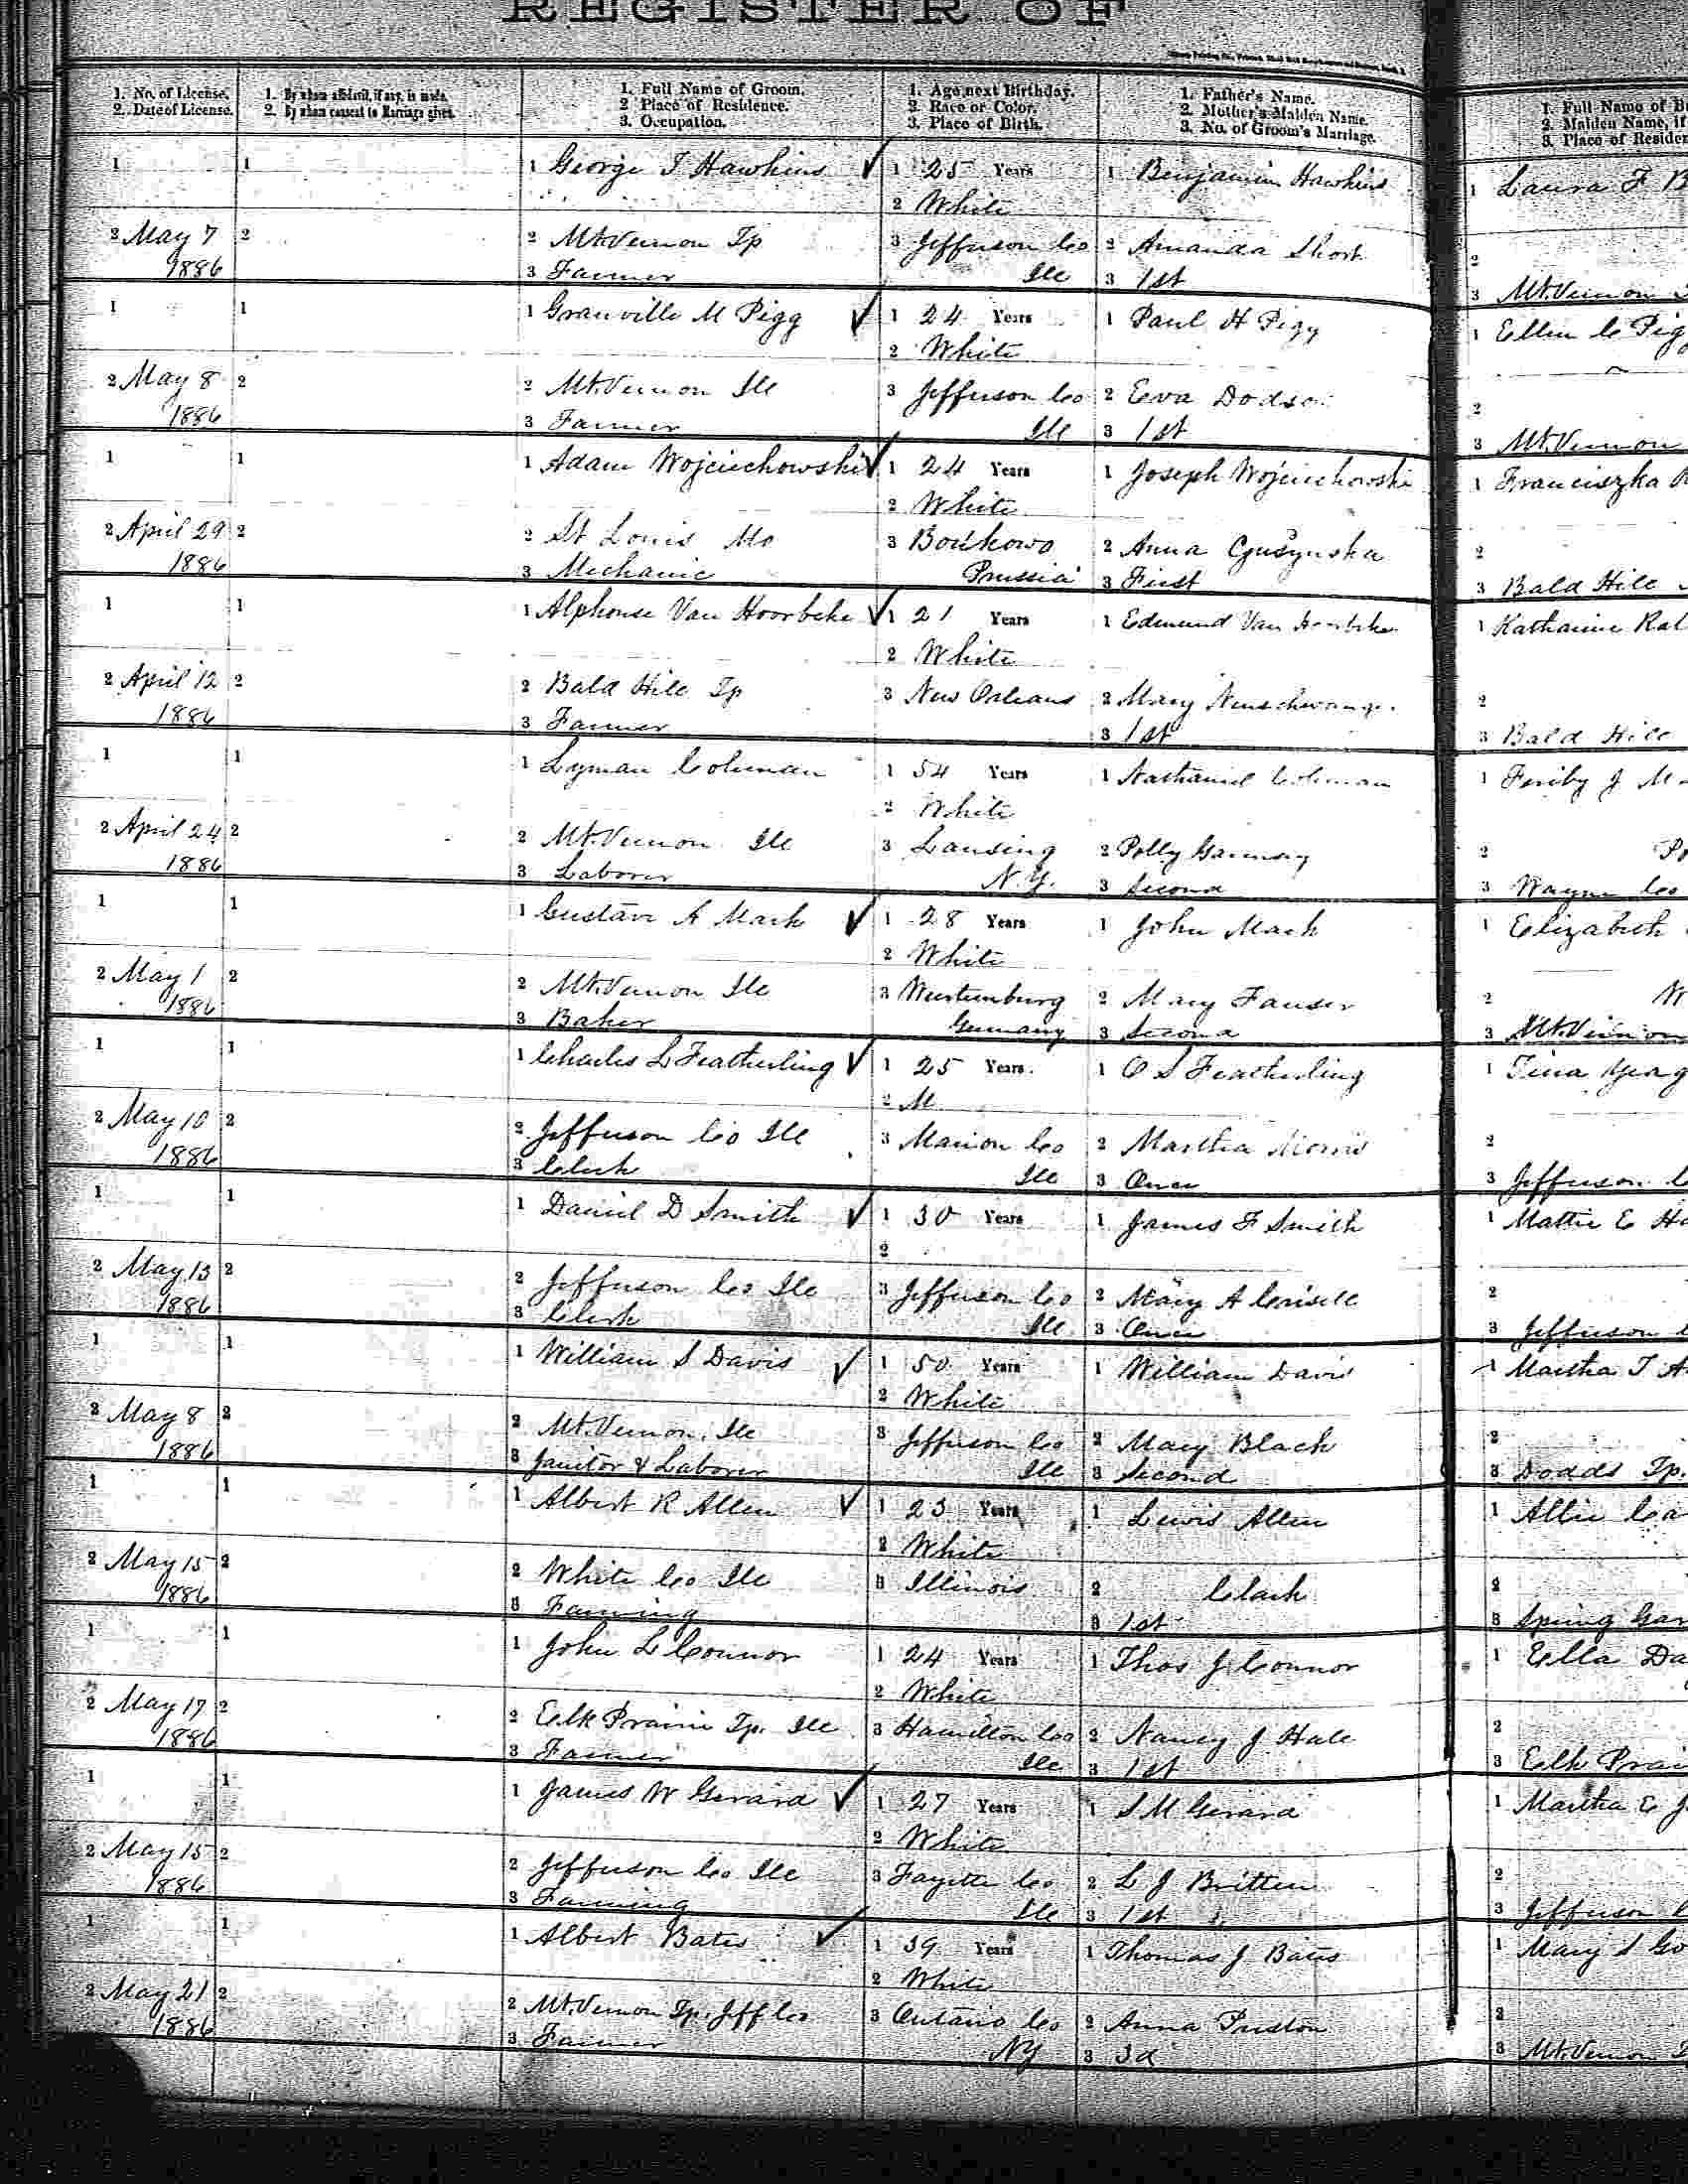 REGISTER OF
1. No. of License. 1. By whom affidavit, if any, is made. 1. Full Name of Groom. 1. Age next Birthday. 1. Father's Name. 1. Full Name of B
2. Date of License. 2. By whom consent to Marriage given. 2 Place of Residence. 2. Race or Color. 2. Mother's Maiden Name. 2. Maiden Name, if
3. Occupation. 3. Place of Birth. 3. No. of Groom's Marriage. 3. Place of Residen
1 1 1 George T Hawkins 1 25 Years 1 Benjamin Hawkins 1 Laura F B
2 White
2 May 7 2 2 Mt. Vernon Tp 3 Jefferson Co 2 Amanda Short 2
1886 3 Farmer Ill 3 1st 3 Mt. Vernon
1 1 1 Granville M Pigg 1 24 Years 1 Paul H Pigg 1 Ellen C Pig
2 White
2 May 8 2 2 Mt. Vernon Ill 3 Jefferson Co 2 Eva Dodson 2
1886 3 Farmer Ill 3 1st 3 Mt. Vernon
1 1 1 Adam Wojciechowski 1 24 Years 1 Joseph Wojciechowski 1 Franciszka
2 White
2 April 29 2 2 St Louis Mo 3 2 Anna 2
1886 3 Mechanic Prussia 3 First 3 Bald Hill
1 1 1 Alphonse Van Hoorbeke 1 21 Years 1 Edmund Van Hoorbeke 1 Katharine Ral
2 White
2 April 12 2 2 Bald Hill Tp 3 New Orleans 2 Mary 2
1886 3 Farmer 3 1st 3 Bald Hill
1 1 1 Lyman Coleman 1 54 Years 1 Nathaniel Coleman 1 Feriby J M
2 White
2 April 24 2 2 Mt. Vernon Ill 3 Lansing 2 Polly 2 Po
1886 3 Laborer N.Y. 3 Second 3 Wayne Co
1 1 1 Gustave A Mack 1 28 Years 1 John Mack 1 Elizabeth
2 White
2 May 1 2 2 Mt. Vernon Ill 3 Wurtemburg 2 Mary Fauser 2
1886 3 Baker Germany 3 Second 3 Mt. Vernon
1 1 1 Charles L Featherling 1 25 Years 1 O S Featherling 1 Tina Yeag
2 M
2 May 10 2 2 Jefferson Co Ill 3 Marion Co 2 Martha Morris 2
1886 3 Clerk Ill 3 Once 3 Jefferson C
1 1 1 Daniel D Smith 1 30 Years 1 James F Smith 1 Mattie E Ha
2
2 May 13 2 2 Jefferson Co Ill 3 Jefferson Co 2 Mary A Criselle 2
1886 3 Clerk Ill 3 Once 3 Jefferson C
1 1 1 William S Davis 1 50 Years 1 William Davis 1 Martha T A
2 White
2 May 8 2 2 Mt. Vernon, Ill 3 Jefferson Co 2 Mary Black 2
1886 3 Janitor & Laborer Ill 3 Second 3 Dodds Tp.
1 1 1 Albert R Allen 1 23 Years 1 Lewis Allen 1 Allie Ca
2 White
2 May 15 2 2 White Co Ill 3 Illinois 2 Clark 2
1886 3 Farming 3 1st 3 Spring Gar
1 1 1 John L Connor 1 24 Years 1 Thos J Connor 1 Ella Da
2 White
2 May 17 2 2 Elk Prairie Tp. Ill 3 Hamilton Co 2 Nancy J Hale 2
1886 3 Farmer Ill 3 1st 3 Elk Prai
1 1 1 James W Gerard 1 27 Years 1 S M Gerard 1 Martha E J
2 White
2 May 15 2 2 Jefferson Co Ill 3 Fayette Co 2 L J Britten 2
1886 3 Farming Ill 3 1st 3 Jefferson C
1 1 1 Albert Bates 1 39 Years 1 Thomas J Bates 1 Mary S Go
2 White
2 May 21 2 2 Mt. Vernon Tp. Jeff Co 3 Ontario Co 2 Anna Preston 2
1886 3 Farmer NY 3 3d 3 Mt. Vernon